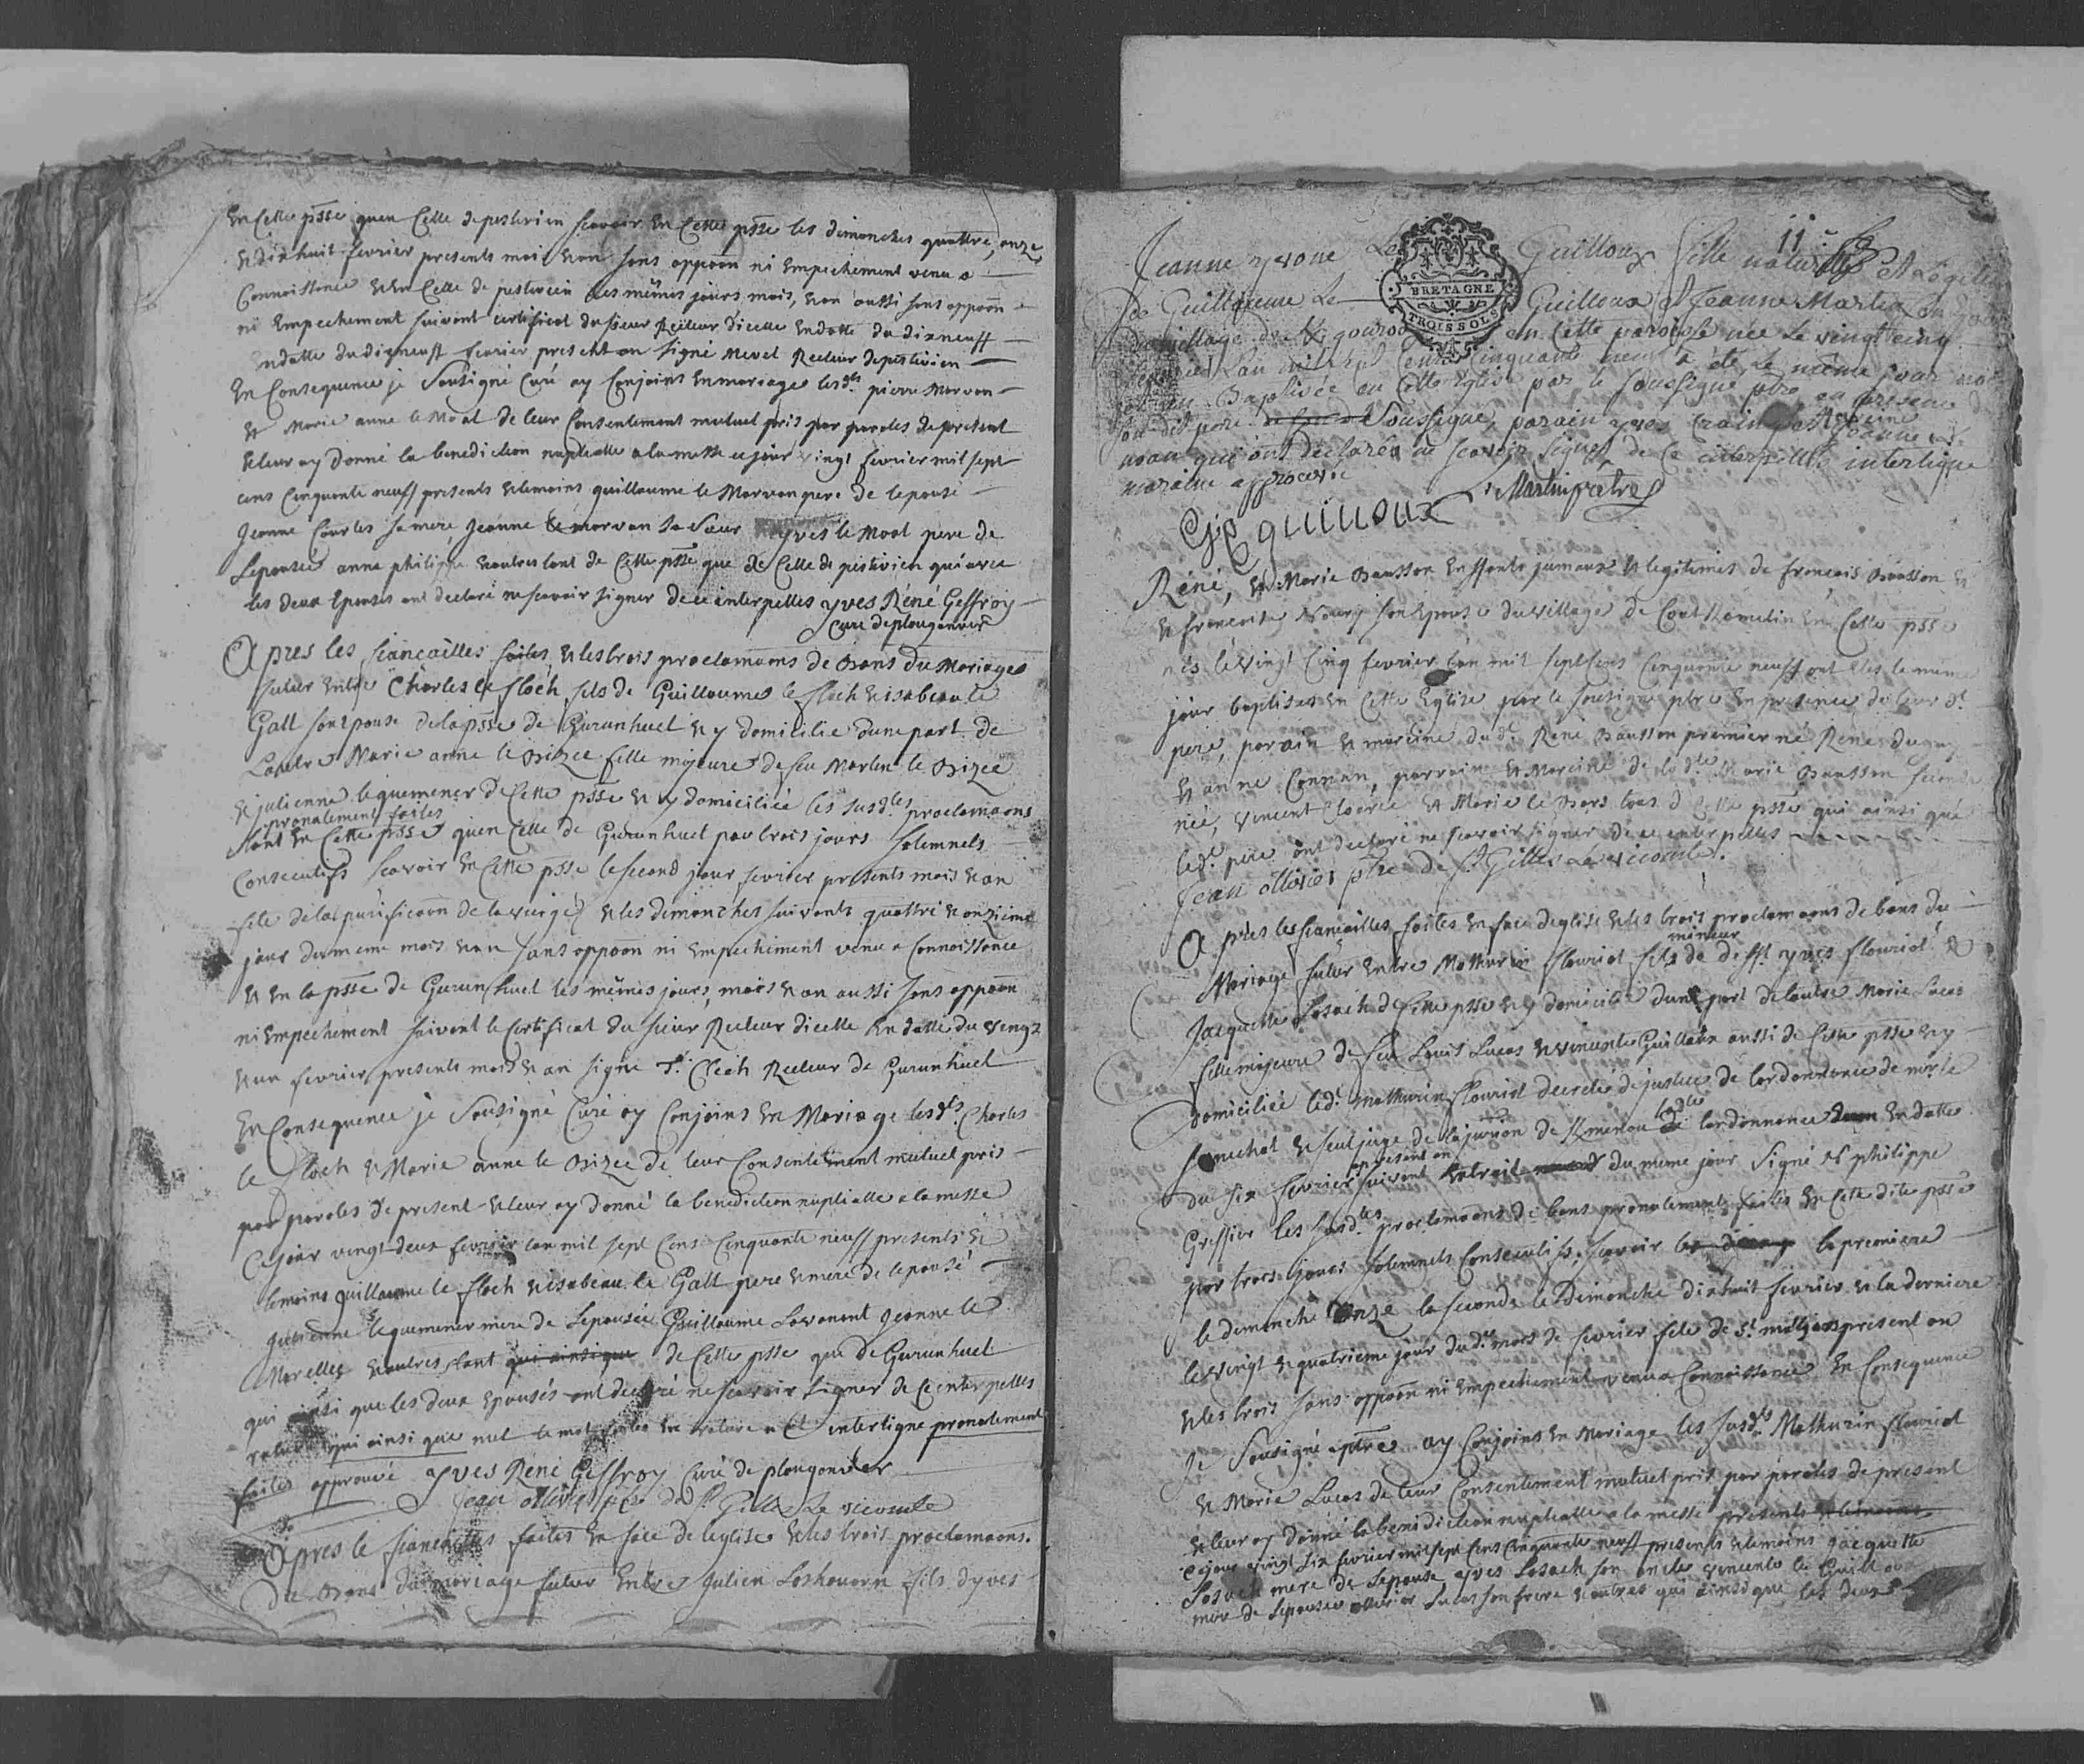 En cette psse quen celle de pestivien scavoir En cette psse les dimanches quattre, onze
& dixhuit fevrier presents mois & an sans oppoon ni Empechement venu a
Connoissance & En Celle de pestivien les mêmes jours mois, & an aussi sans oppoon
ni Empechement suivant certificat du sieur Recteur dicelle Endatte du dixneuff
Endatte du dixneuff fevrier present an signé Recteur de pestivien
En Consequence je Sousigné Curé ay Conjoins En mariage les dts pierre Morvan
& Marie anne le Moal de leur Consentement mutuel pris par paroles de present
& leur ay donné la benediction nuptialle a la messe ce jour vingt fevrier mil sept
cens Cinquante neuff presents & temoins guillaume le Morvan pere de lepousé
Jeanne sa mere, Jeanne le morvan sa Sœur yves le Moal pere de
Lepousée anne philippe & autres tant de Cette psse que de Celle de pestivien qui avec
les deux Epousés ont declaré ne scavoir signer de ce interpelles yves René Geffroy
Curé de plougonver
Apres les fiancailles faites, & les trois proclamaons de Bans du Mariage
futur Entre Charles le floch, fils de Guillaume le floch & isabeau le
Gall son epouse de la psse de Gurunhuel & y domicilié dune part. De
Lautre Marie anne le Bizec fille majeure de feu Martin le Bizec
& julienne le quemener de Cette psse & y domiciliée les susdtes proclamaons
pronalement faites
tant En Cette psse quen Celle de Gurunhuel par trois jours solemnels
Consecutifs scavoir En Cette psse le second jour fevrier presents mois & an
fete de la purificaon de la vierge & les dimanches suivants quattre & onzieme
jour du meme mois & an sans oppoon ni Empechement venu a Connoissance
& En la psse de Gurunhuel les mêmes jours, mois & an aussi sans oppoon
ni Empechement suivant le Certificat du sieur Recteur dicelle En datte du vingt
& un fevrier presents mois & an signé Recteur de Gurunhuel
En Consequence je Sousigné Curé ay Conjoins En Mariage les dts Charles
le floch & Marie anne le Bizec de leur Consentement mutuel pris
par paroles de present & leur ay donné la benediction nuptialle a la messe
Ce jour vingt deux fevrier lan mil sept Cens Cinquante neuff presents &
temoins guillaume le floch & isabeau le Gall pere & mere de lepousé
Julienne le quemener mere de Lepousée Guillaume Lavanant Jeanne le
& autres tant qui ainsi que de Cette psse que de Gurunhuel
qui ainsi que les deux Epousés ont declaré ne scavoir signer de Ce interpelles
rature qui ainsi que nul le mot faites En rature & interligne pronalement
faites approuvé yves René Geffroy Curé de plougonver
jean ollivier ptre de St Gilles Le vicomte
Apres le fiancailles faites En face de leglise & les trois proclamaons.
De Bans du mariage futur Entre Julien Loshouarn fils dyves
11e
Jeanne yvone Le Guilloux fille naturelle et Legitime
de Guillaume Le Guilloux & Jeanne Martin
du village de en cette paroisse née le vingt cinq
fevrier Lan mil sept Cents Cinquante neuf a été le même jour
Baptisée en Cette Eglise par le soussigné ptre en presence de
son dit pere Soussigné, parain yves Jeanne Le
qui ont declaré ne scavoir signer de ce interpellé interligne
maraine approuvé
Martin prêtre
G guilloux
René, & Marie Bausson Enffants jumeaux & legitimes de francois Bausson &
& francoise son epouse du village de En Cette psse
nés le vingt Cinq fevrier lan mil sept cens Cinquante neuff ont étés le meme
jour baptises En Cette Eglise par le sousigné ptre En presence de leur dt
pere, parain & mareine du dt René Bausson premier né René
& anne Connan, parrain & Mareine de la dte Marie Bausson seconde
née, vincent & Marie le Bars tous de Cette psse qui ainsi que
le dt pere ont declaré ne scavoir signer de ce interpelles
Jean ollivier ptre de St Gilles Le vicomte.
Apres les fiancailles faites En face deglise & les trois proclamaons de bans du
mineur
Mariage futur Entre Mathurin flouriot fils de defft yves flouriot &
Jacquette Losach de Cette psse & y domicilié dune part de lautre Marie Lucas
fille majeure de feu Louis Lucas & vincente Guilloux aussi de Cette psse & y
domiciliée le dt mathurin flouriot decreté de justice de lordonnance de mr le
senechal & seul juge de la jurion de lordonnance En datte
du six fevrier suivant extrait du meme jour signé philippe
Greffier les susdtes proclamaons de bans pronalement faites En Cette dite psse
par trois jours solemnels Consecutifs; scavoir la premiere
le dimanche onze la seconde le Dimanche dixhuit fevrier & la derniere
le vingt & quatrieme jour du dt mois de fevrier fete de St mathias present an
& les trois sans oppoon ni Empechement venu a Connoissance En Consequence
je Sousigné ptre ay Conjoins En Mariage les susdts Mathurin flouriot
& Marie Lucas de leur Consentement mutuel pris par paroles de present
& leur ay donné la benediction nuptialle a la messe presents & temoins
ce jour vingt six fevrier mil sept Cens Cinquante neuff presents & temoins jacquette
Losach mere de lepousé yves Losach son oncle vincente le Guilloux
mere de lepousée Lucas son frere & autres qui ainsi que les deux
BRETAGNE
TROIS SOLS